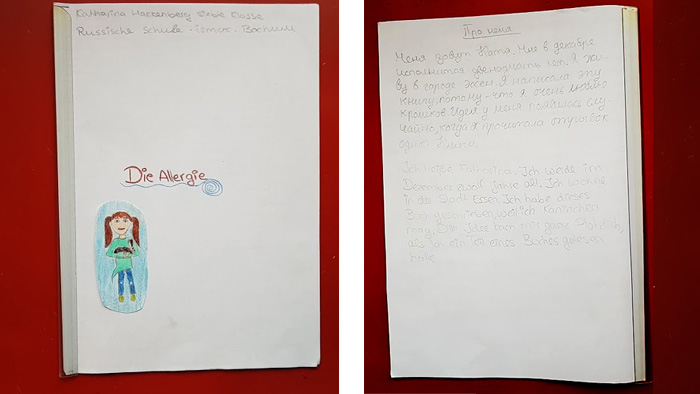 Katharina Hackenberg Klasse
Russische Schule · ismek · Bochum
Die Allergie
Про меня
Меня зовут Катя. Мне в декабре
исполнится двенадцать лет. Я жи-
ву в городе Эссен. Я написала эту
книгу, потому-что я очень люблю
кроликов. Идея у меня появилась слу-
чайно, когда я прочитала отрывок
Ich heiße Katharina. Ich werde im
Dezember zwölf Jahre alt. Ich wohne
in der Stadt Essen. Ich habe dieses
Buch geschrieben, weil ich Kaninchen
mag. Die Idee kam mir ganz
als ich ein Teil eines Buches gelesen
habe.